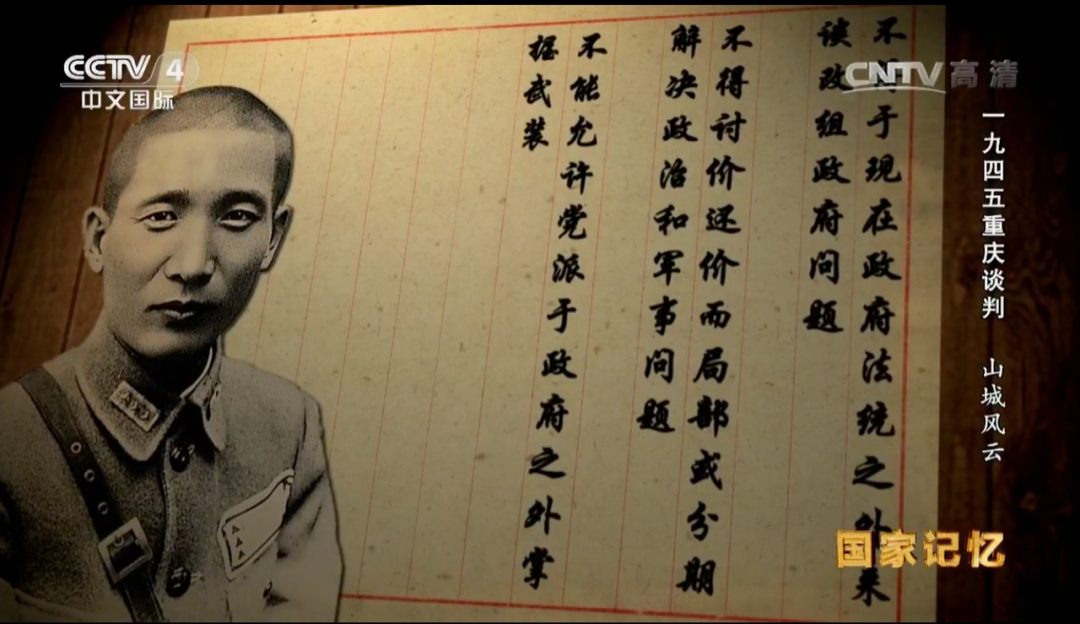 CCTV 4
中文国际
CNTV 高清
一九四五重庆谈判 山城风云
不得于现在政府法统之外来
谈改组政府问题
不得讨价还价而局部或分期
解决政治和军事问题
不能允许党派于政府之外掌
握武装
国家记忆